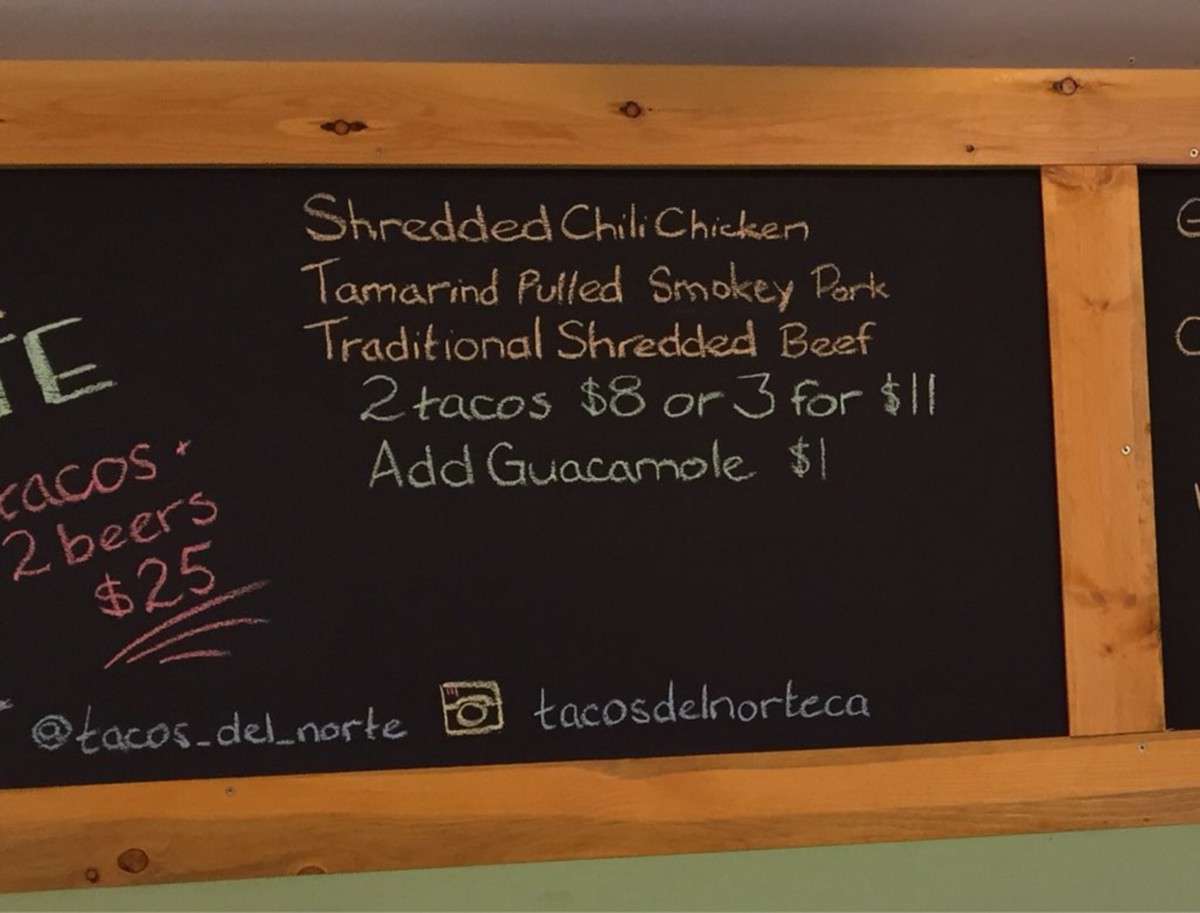 Shredded Chili Chicken
Tamarind Pulled Smokey Pork
Traditional Shredded Beef
2 tacos $8 or 3 for $11
Add Guacamole $1
tacos +
2 beers
$25
@tacos_del_norte
tacosdelnorteca